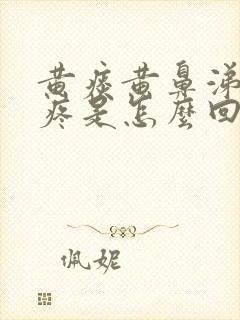 黄痰黄鼻涕
疼是怎麼回
佩妮